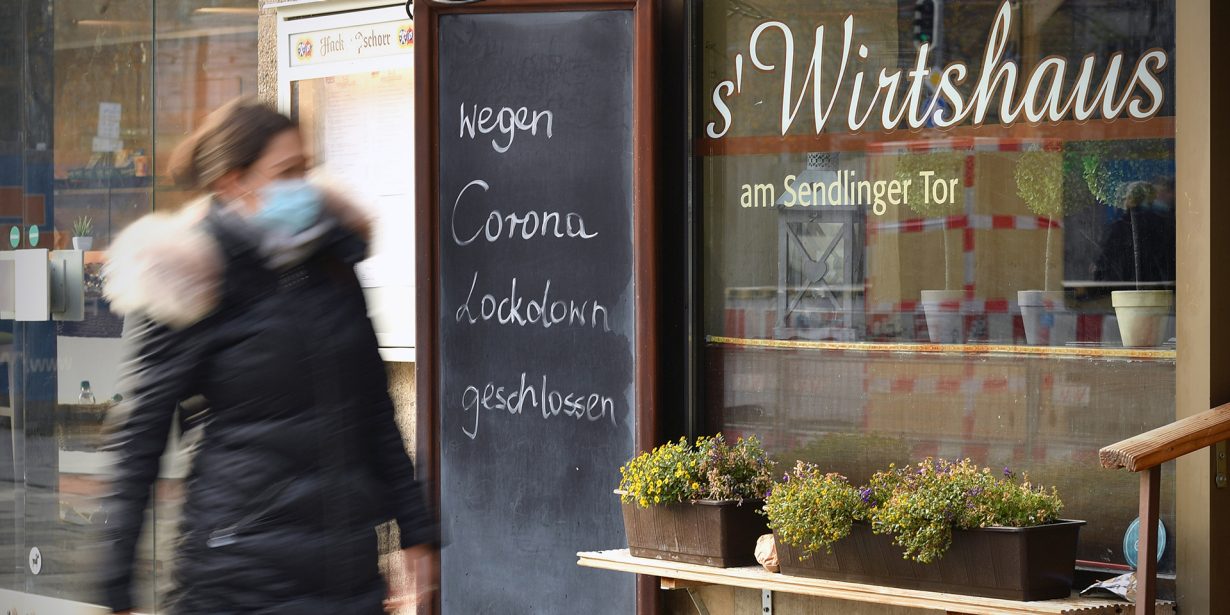 Hack Pschorr
wegen
Corona
Lockdown
geschlossen
s'Wirtshaus
am Sendlinger Tor
www